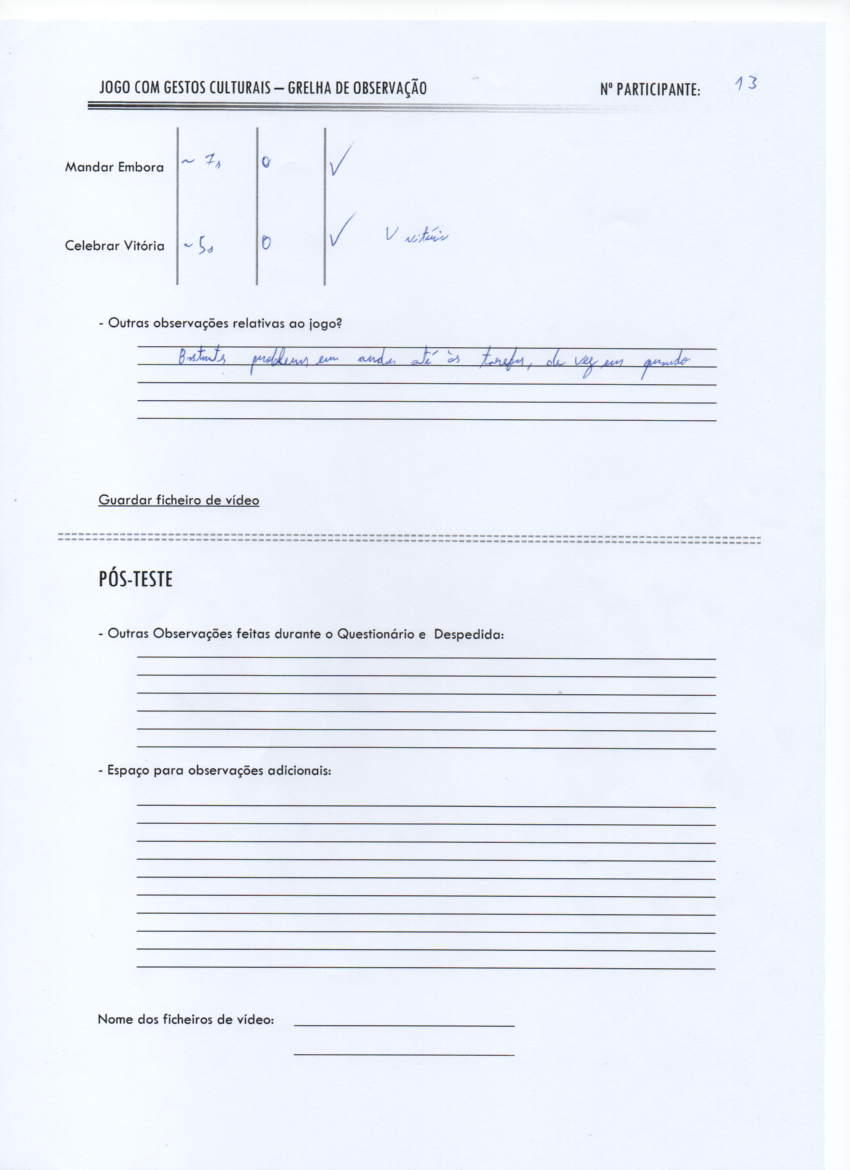 JOGO COM GESTOS CULTURAIS – GRELHA DE OBSERVAÇÃO Nº PARTICIPANTE: 13
Mandar Embora ~ 7s 0 ✓
Celebrar Vitória ~ 5s 0 ✓ V vitória
- Outras observações relativas ao jogo?
Bastantes problemas em andar até às tarefas, de vez em quando
Guardar ficheiro de vídeo
PÓS-TESTE
- Outras Observações feitas durante o Questionário e Despedida:
- Espaço para observações adicionais:
Nome dos ficheiros de vídeo: